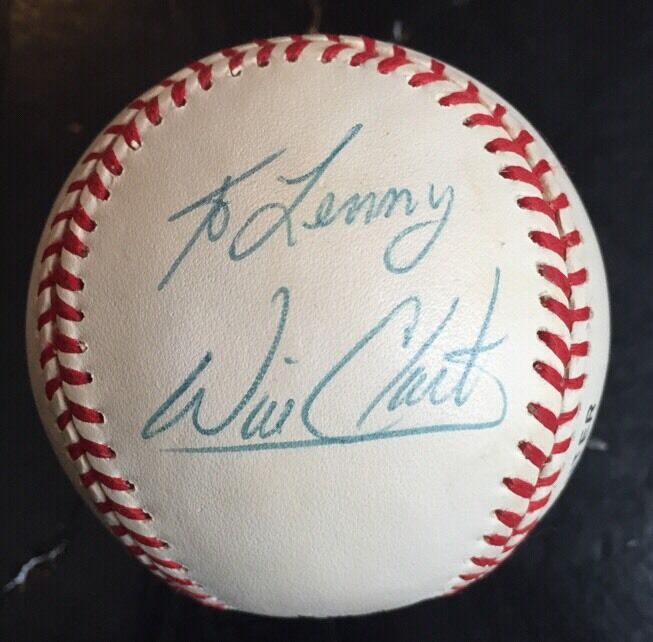 To Lenny
Will Clark